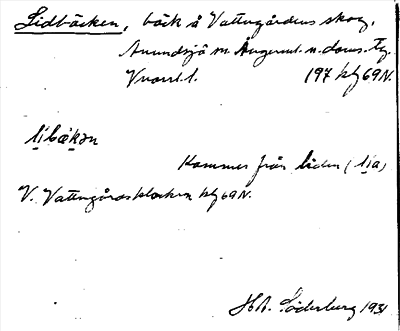 Lidbäcken, bäck å Vattugårdens skog,
Anundsjö sn. Ångerml. n. doms. Tg.
197 kbj 69N.
lìbækən
Kommer från liden (lìa)
V. Vattugårdsklocken kbj 69N.
H.A. Söderberg 1931